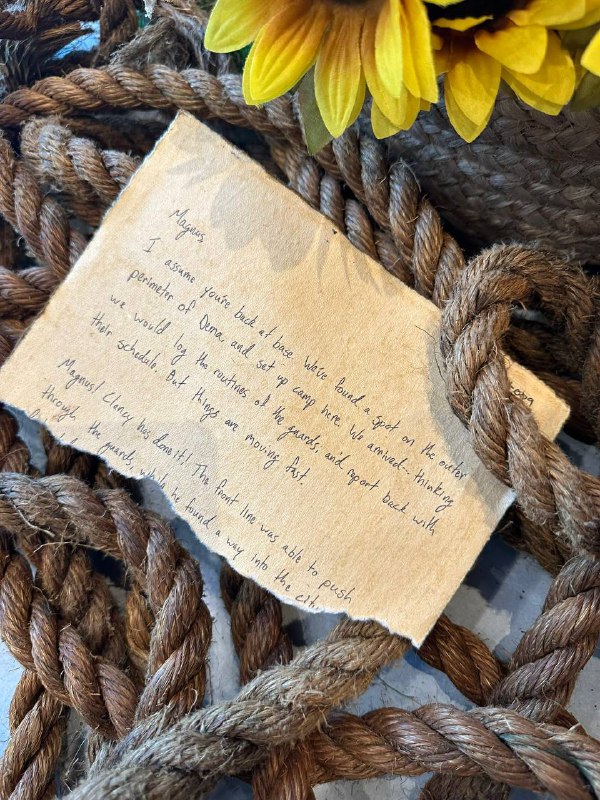 Magnus,
I assume you're back at base. We've found a spot on the outer
perimeter of Dema, and set up camp here. We arrived... thinking
we would log the routines of the guards, and report back with
their schedule. But things are moving fast.
Magnus! Clancy has done it! The front line was able to push
through the guards, while he found a way into the city